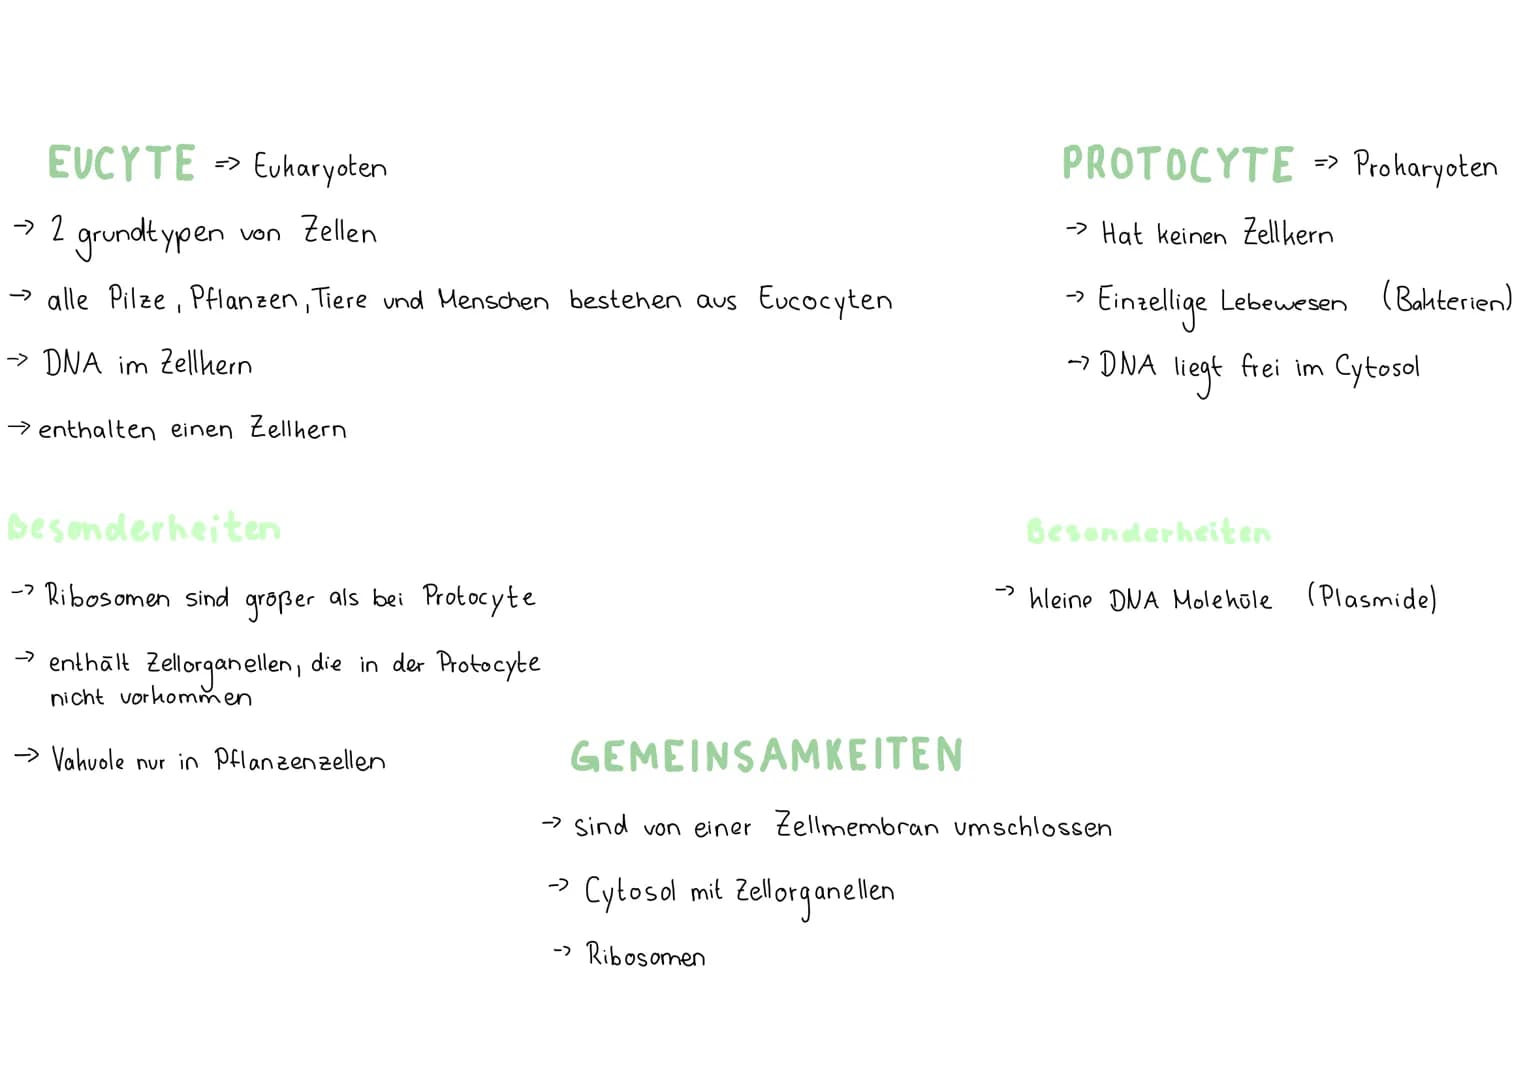 EUCYTE => Eukaryoten
→ 2 grundtypen von Zellen
→ alle Pilze, Pflanzen, Tiere und Menschen bestehen aus Eucocyten
→ DNA im Zellkern
→ enthalten einen Zellkern
Besonderheiten
→ Ribosomen sind größer als bei Protocyte
→ enthält Zellorganellen, die in der Protocyte
nicht vorkommen
→ Vakuole nur in Pflanzenzellen
PROTOCYTE => Prokaryoten
→ Hat keinen Zellkern
→ Einzellige Lebewesen (Bakterien)
→ DNA liegt frei im Cytosol
Besonderheiten
→ kleine DNA Moleküle (Plasmide)
GEMEINSAMKEITEN
→ sind von einer Zellmembran umschlossen
→ Cytosol mit Zellorganellen
→ Ribosomen